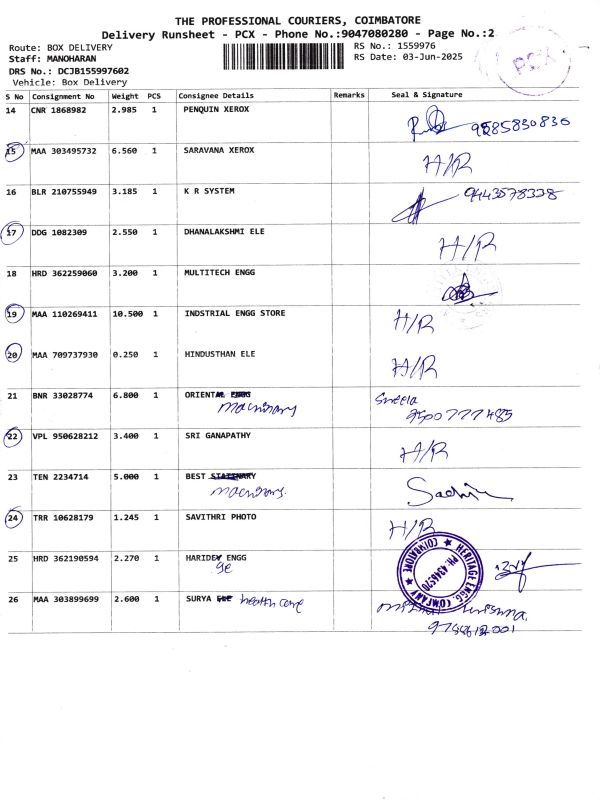 THE PROFESSIONAL COURIERS, COIMBATORE
Delivery Runsheet - PCX - Phone No.:9047080280 - Page No.:2
Route: BOX DELIVERY RS No.: 1559976
Staff: MANOHARAN RS Date: 03-Jun-2025
DRS No.: DCJB155997602
Vehicle: Box Delivery
PCX
S No Consignment No Weight PCS Consignee Details Remarks Seal & Signature
14 CNR 1868982 2.985 1 PENQUIN XEROX 9585830830
15 MAA 303495732 6.560 1 SARAVANA XEROX H/R
16 BLR 210755949 3.185 1 K R SYSTEM 9443578338
17 DDG 1082309 2.550 1 DHANALAKSHMI ELE H/R
18 HRD 362259060 3.200 1 MULTITECH ENGG
19 MAA 110269411 10.500 1 INDSTRIAL ENGG STORE H/R
20 MAA 709737930 0.250 1 HINDUSTHAN ELE H/R
21 BNR 33028774 6.800 1 ORIENTAL ENGG Sheela
machinary 9500777485
22 VPL 950628212 3.400 1 SRI GANAPATHY H/R
23 TEN 2234714 5.000 1 BEST STATINARY
machinary.
24 TRR 10628179 1.245 1 SAVITHRI PHOTO H/R
25 HRD 362190594 2.270 1 HARIDEV ENGG
ge
HERITAGE ENGG. COMPANY ★ COIMBATORE ★
26 MAA 303899699 2.600 1 SURYA ELE health care